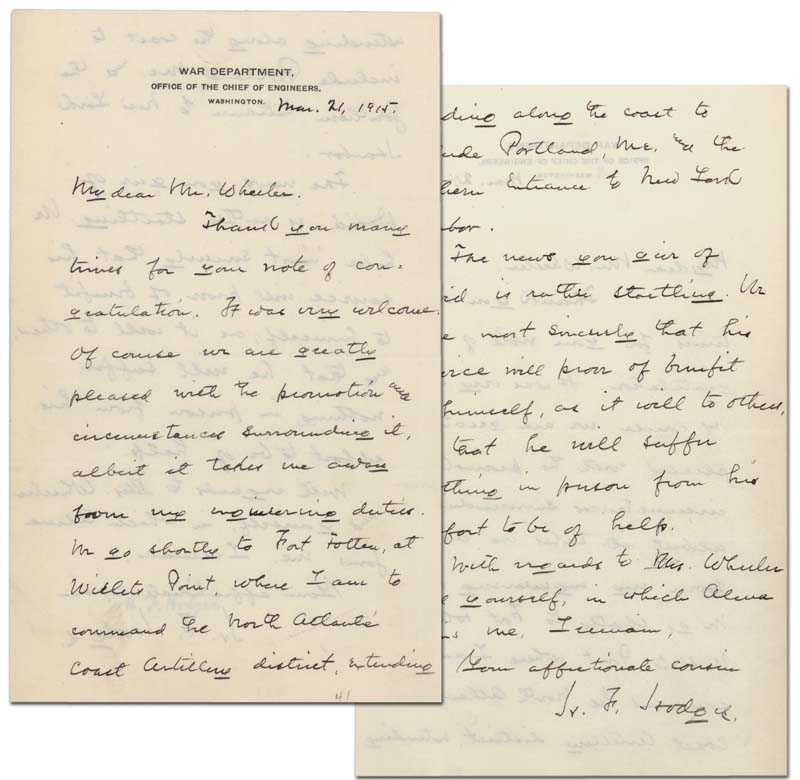 WAR DEPARTMENT,
OFFICE OF THE CHIEF OF ENGINEERS,
WASHINGTON. Mar. 21, 1915.
My dear Mr. Wheeler.
Thank you many
times for your note of con-
gratulation. It was very welcome.
Of course we are greatly
pleased with the promotion and
circumstances surrounding it,
albeit it takes me away
from my engineering duties.
We go shortly to Fort Totten, at
Willets Point, where I am to
command the North Atlantic
Coast Artillery district, extending
ding along the coast to
ude Portland, Me. and the
hern Entrance to New York
bor.
The news you give of
id is rather startling. We
e most sincerely that his
vice will prove of benefit
himself, as it will to others,
that he will suffer
thing in person from his
fort to be of help.
With regards to Mrs. Wheeler
yourself, in which Alma
s me, I remain,
Your affectionate cousin
H. F. Hodges.
41